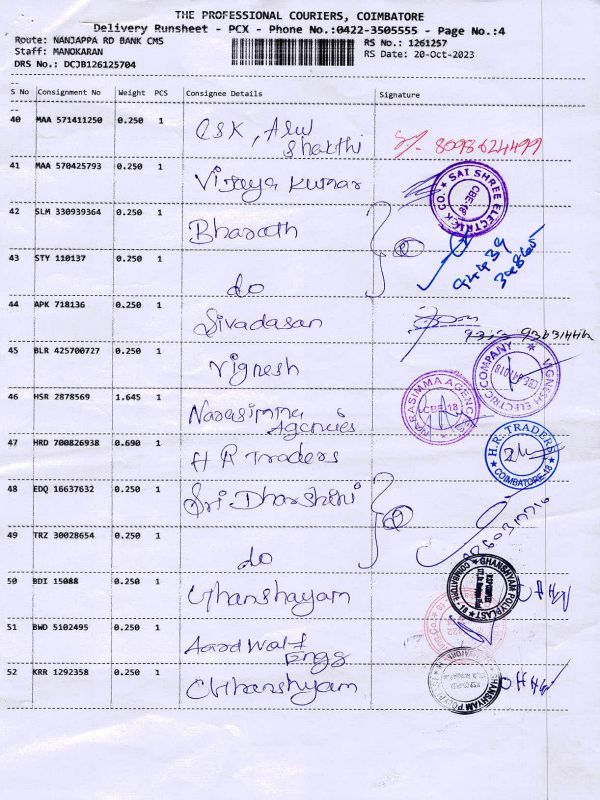 THE PROFESSIONAL COURIERS, COIMBATORE
Delivery Runsheet - PCX - Phone No.:0422-3505555 - Page No.:4
Route: NANJAPPA RD BANK CMS RS No.: 1261257
Staff: MANOKARAN RS Date: 20-Oct-2023
DRS No.: DCJB126125704
S No Consignment No Weight PCS Consignee Details Signature
40 MAA 571411250 0.250 1 CSK, Asw
Shakthi 8098624499
41 MAA 570425793 0.250 1 Vijaya Kumar SAI SHREE ELECTRIC
42 SLM 330939364 0.250 1 Bharath 2
43 STY 110137 0.250 1 do 94439
308665
44 APK 718136 0.250 1 Sivadasan
45 BLR 425700727 0.250 1 Vignesh VIGNESH ELECTRIC COMPANY
46 HSR 2878569 1.645 1 Narasimma
Agencies NARASIMMA AGENCIES CBE-18
47 HRD 700826938 0.690 1 H R Traders H.R. TRADERS COIMBATORE-18
48 EDQ 16637632 0.250 1 Sri Dharshini 2
49 TRZ 30028654 0.250 1 do
50 BDI 15088 0.250 1 Ghanshyam GHANSHYAM POLYPLAST COIMBATORE-18
51 BWD 5102495 0.250 1 Aardwolf
Engg
52 KRR 1292358 0.250 1 Ghanshyam GHANSHYAM POLYPLAST